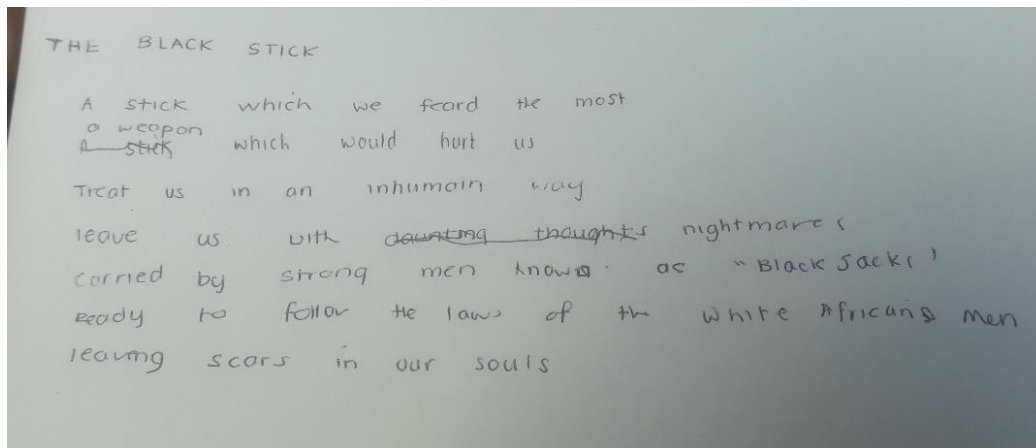 THE BLACK STICK
A stick which we feard the most
a weapon
A stick which would hurt us
Treat us in an inhumain way
leave us with daunting thoughts nightmares
carried by strong men knows as "Black Jacks"
Ready to follow the laws of the white Africans men
leaving scars in our souls